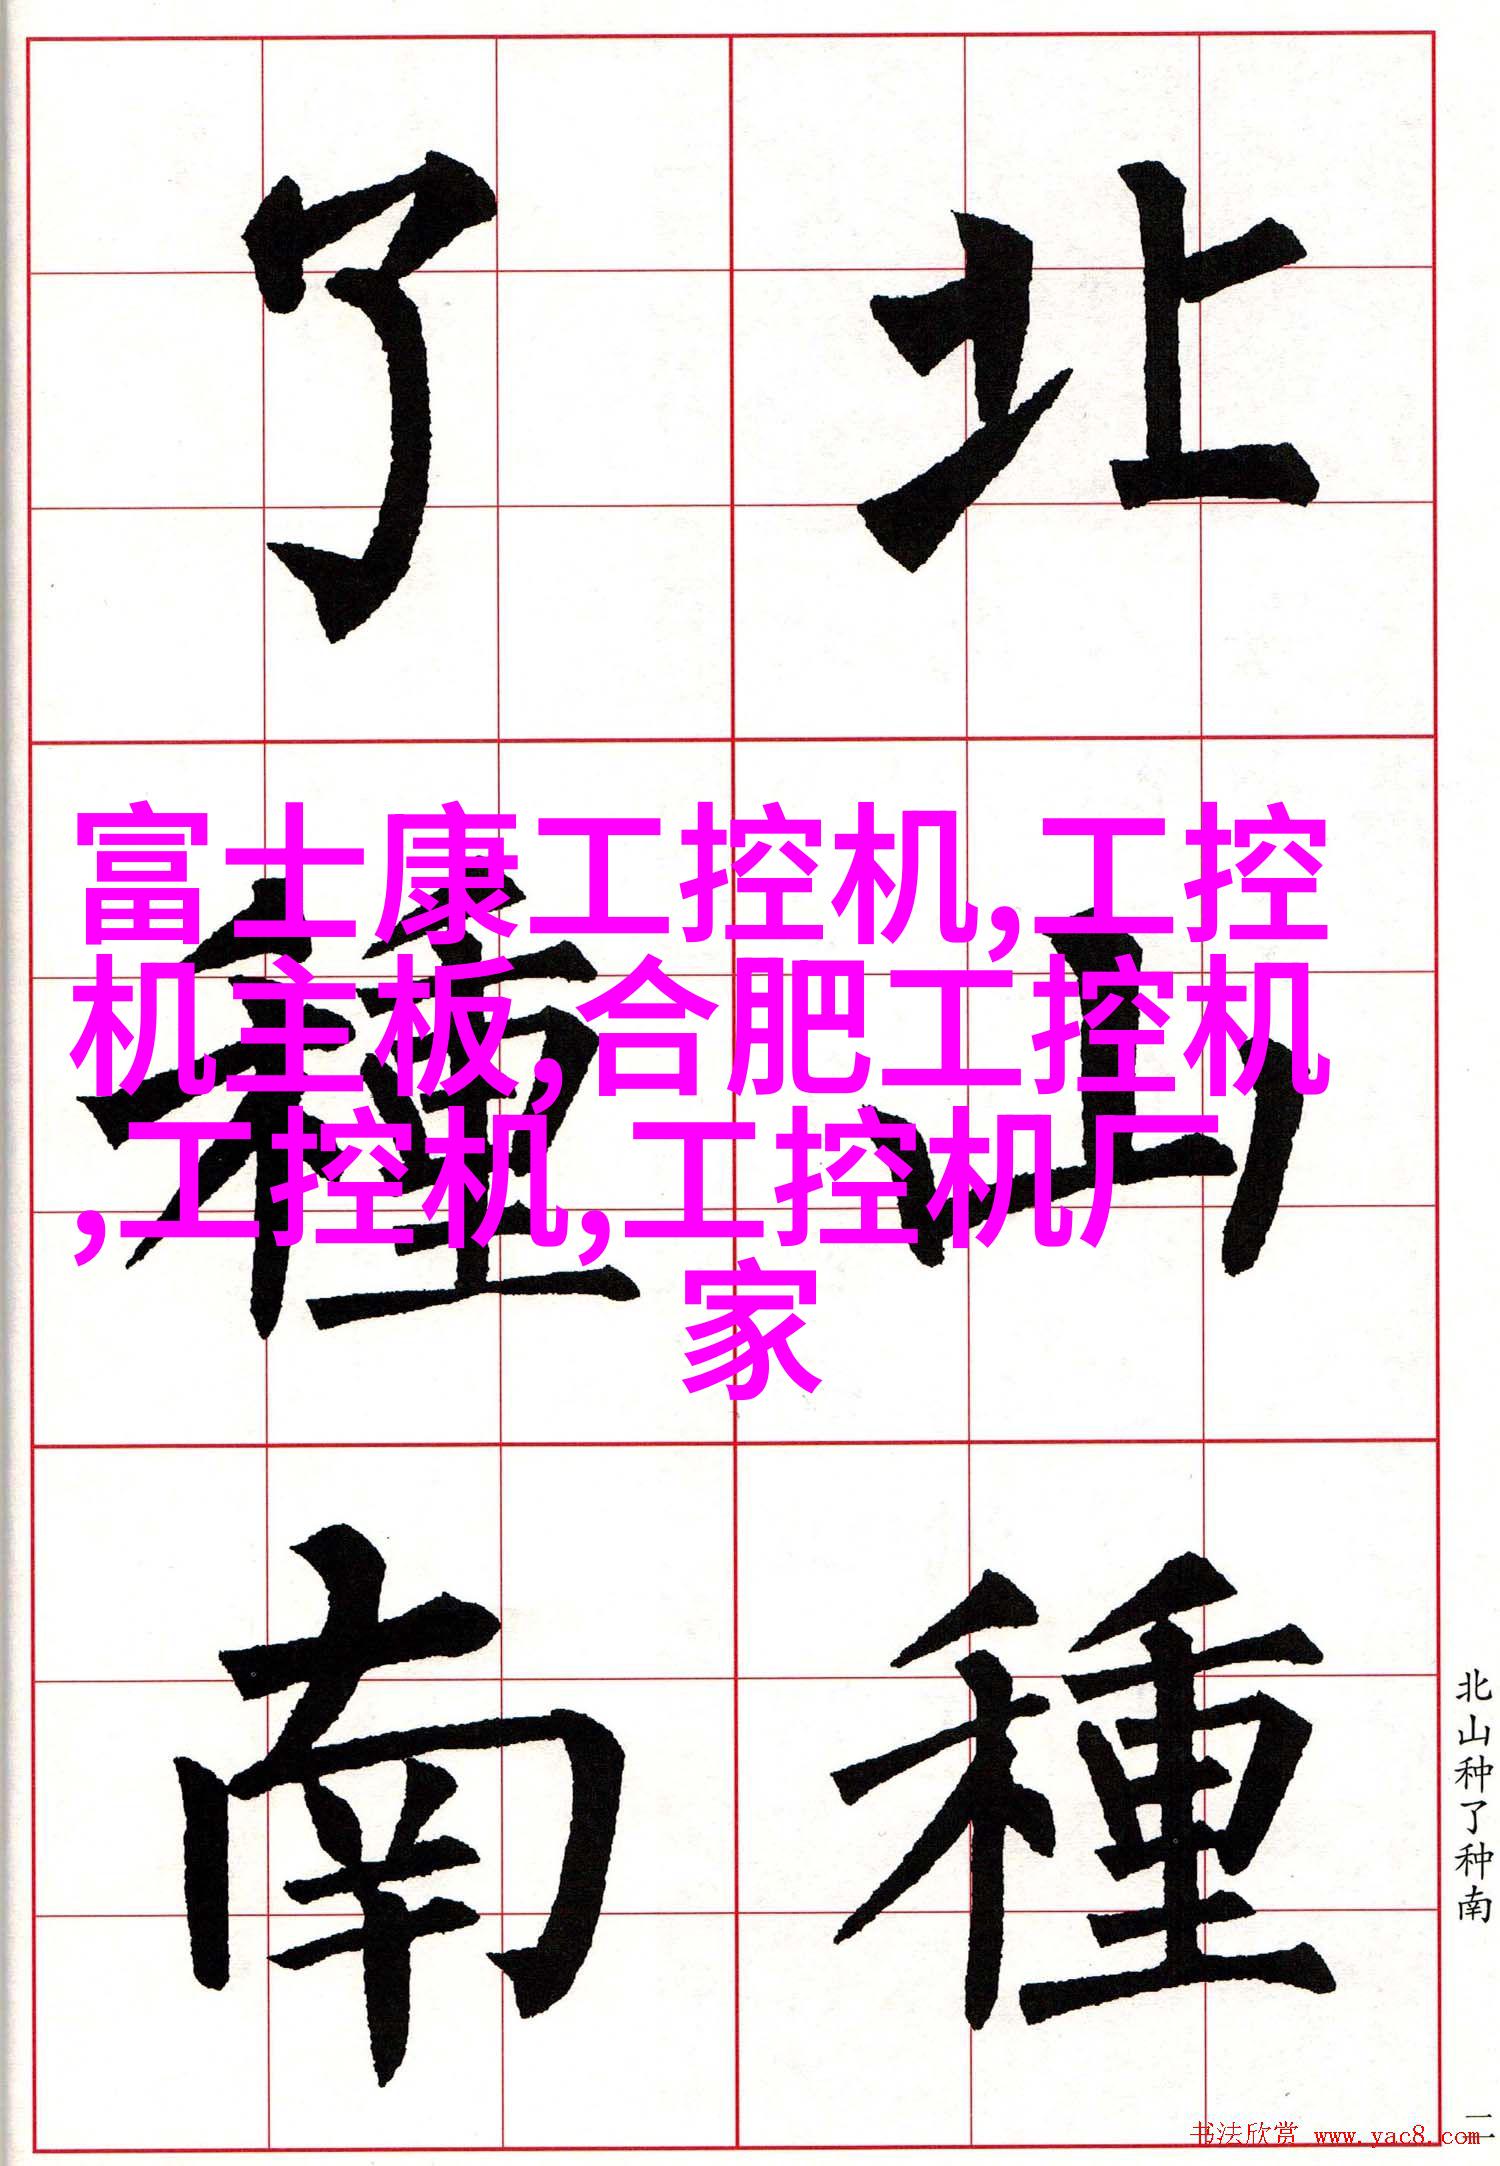 北山種
了種南
富士康工控机,工控
机主板,合肥工控机
,工控机,工控机厂
家
北山种了种南
二
书法欣赏 www.yac8.com